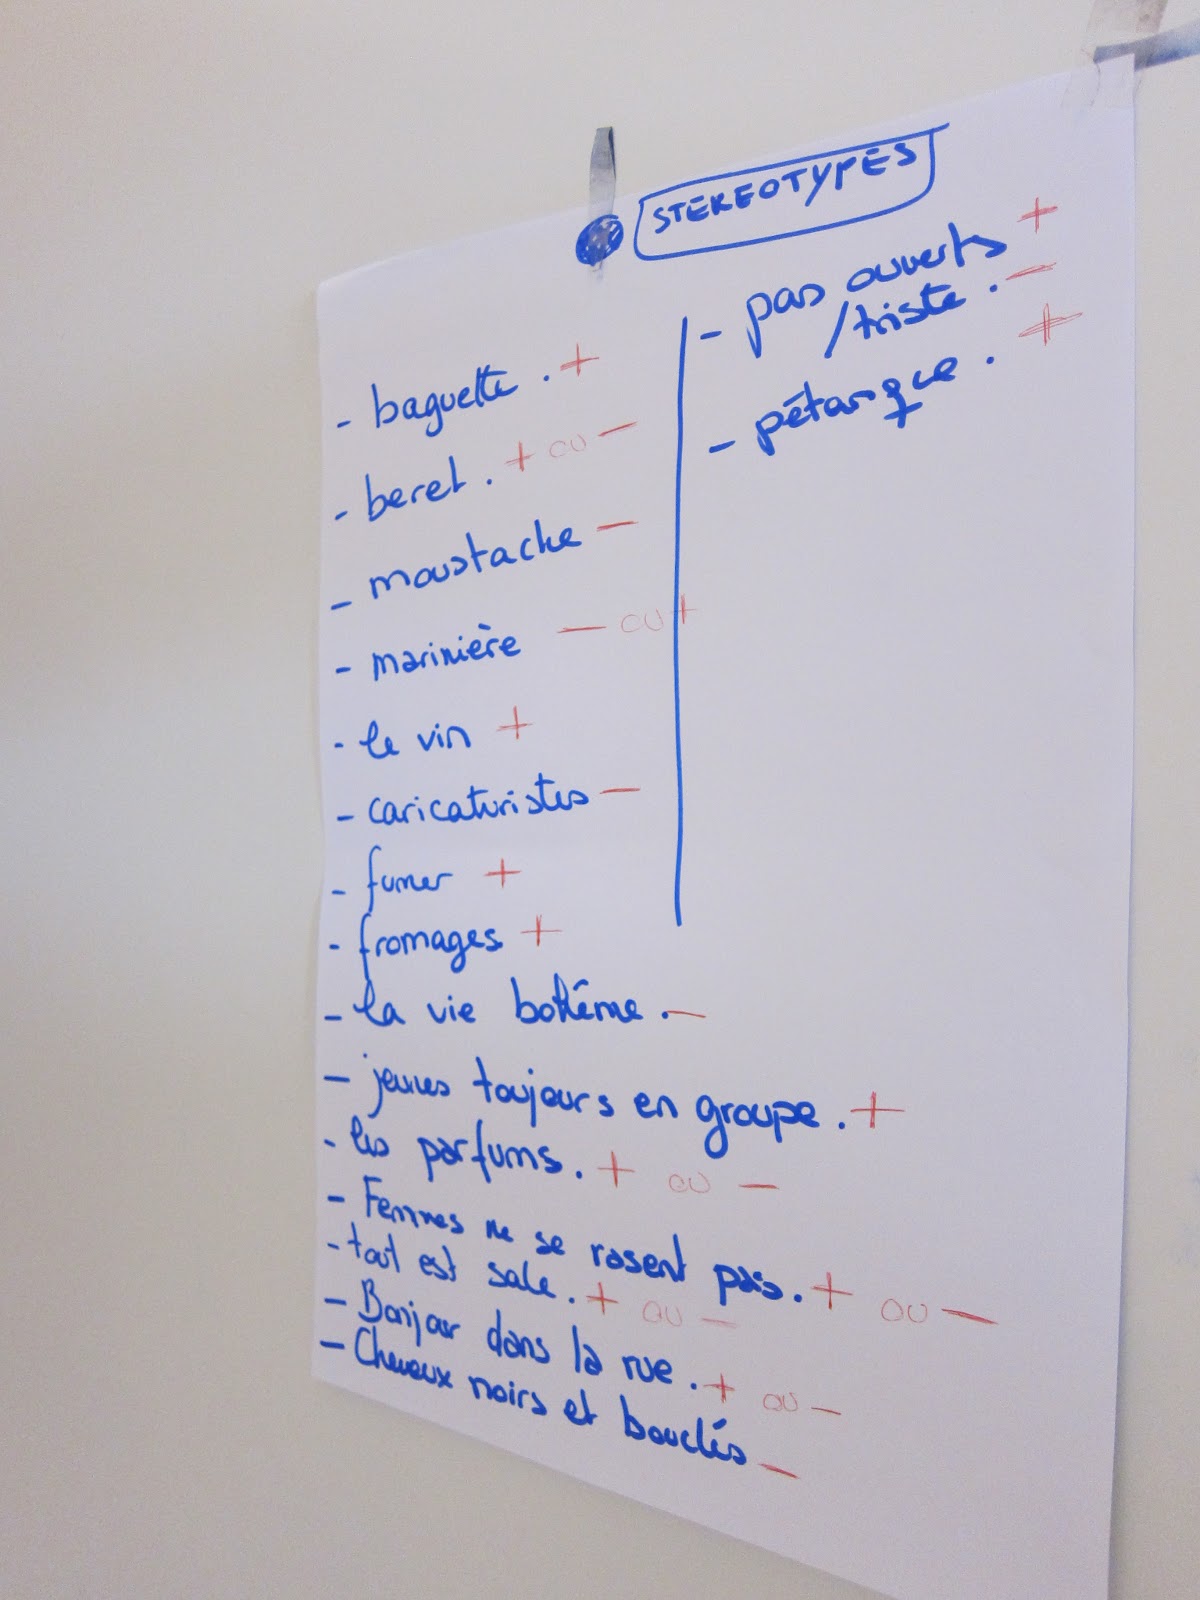 STEREOTYPES
- baguette . +
- beret . + ou -
- moustache -
- marinière - ou +
- le vin +
- caricaturistes -
- fumer +
- fromages +
- la vie bohême . -
- jeunes toujours en groupe . +
- les parfums . + ou -
- Femmes ne se rasent pas . + ou -
- tout est sale . + ou -
- Bonjour dans la rue . + ou -
- Cheveux noirs et bouclés -
- pas ouverts +
/triste . -
- pétanque . +